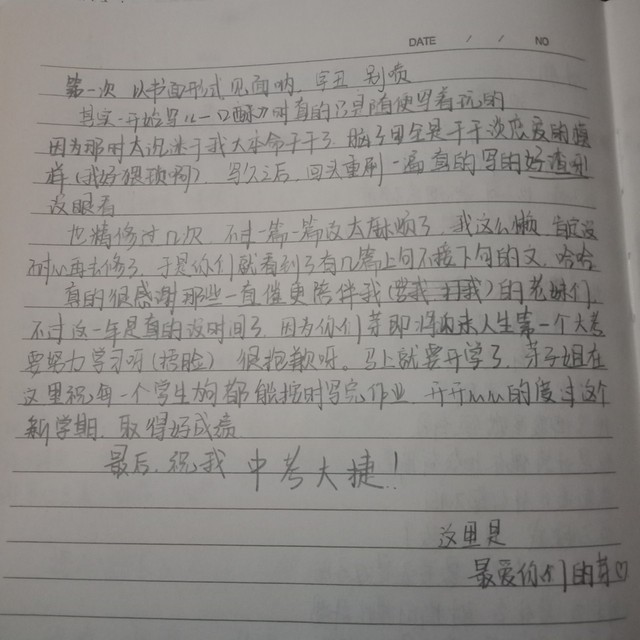 DATE / / NO
第一次 以书面形式见面呐，字丑 别喷
其实一开始写《一口酥》时真的只是随便写着玩的
因为那时太沉迷于我大本命千千了，脑子里全是千千谈恋爱的模
样（我好猥琐啊），写久之后，回头重刷一遍真的写的好渣到
没眼看
也精修过几次，不过一篇一篇改太麻烦了，我这么懒，肯定没
耐心再去修了，于是你们就看到了有几篇上句不接下句的文，哈哈
真的很感谢那些一直催更陪伴我的花妹们，
不过这一年是真的没时间了，因为你们芽即将向来人生第一个大考
要努力学习呀（捂脸）很抱歉呀。马上就要开学了，芽子姐在
这里祝每一个学生狗都能按时写完作业，开开心心的度过这个
新学期，取得好成绩
最后，祝我 中考大捷！
这里是
最爱你们的芽♡